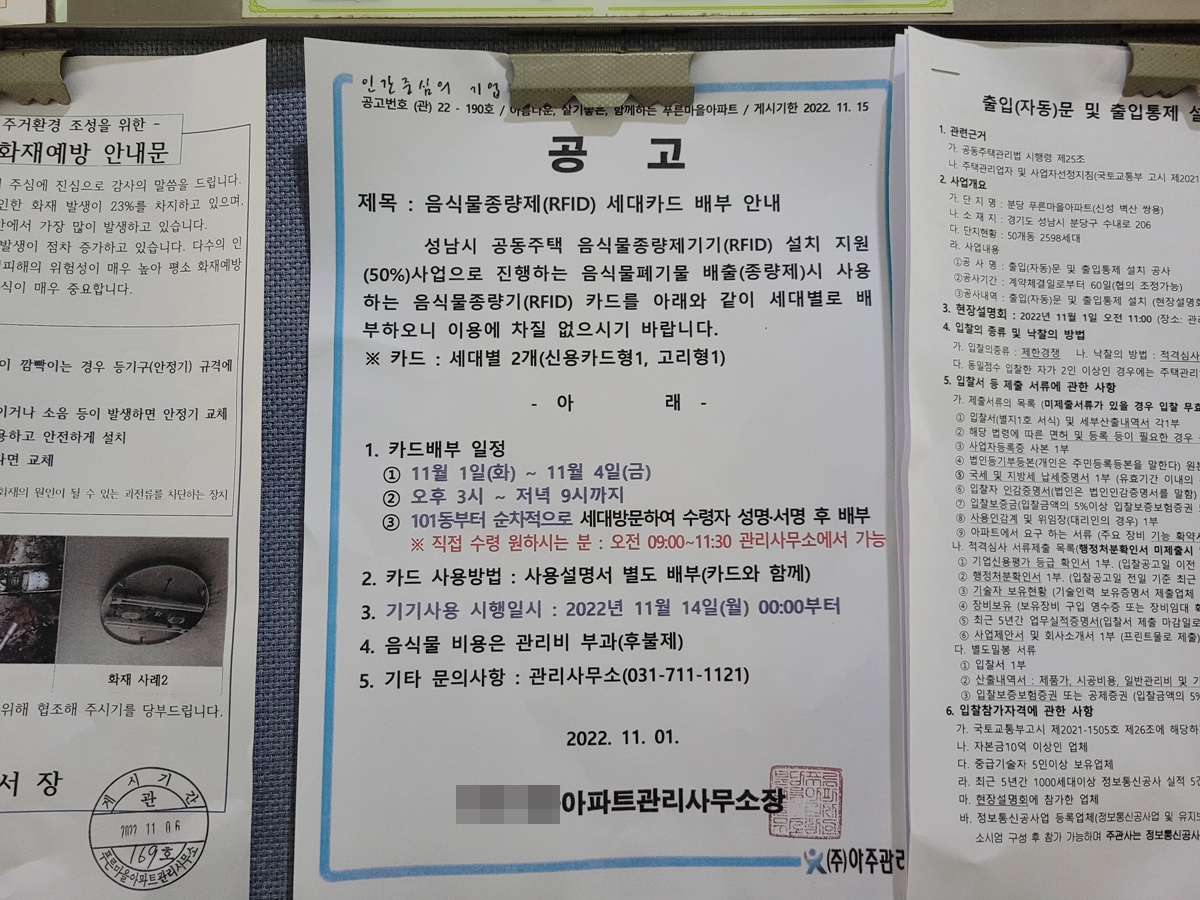 주거환경 조성을 위한 -
화재예방 안내문
주심에 진심으로 감사의 말씀을 드립니다.
인한 화재 발생이 23%를 차지하고 있으며,
에서 가장 많이 발생하고 있습니다.
발생이 점차 증가하고 있습니다. 다수의 인
피해의 위험성이 매우 높아 평소 화재예방
식이 매우 중요합니다.
이 깜빡이는 경우 등기구(안정기) 규격에
이거나 소음 등이 발생하면 안정기 교체
용하고 안전하게 설치
다면 교체
화재의 원인이 될 수 있는 과전류를 차단하는 장치
화재 사례2
위해 협조해 주시기를 당부드립니다.
서 장
게시기간
관
2022 11 06
169호
푸른마을아파트관리사무소
인간중심의 기업
공고번호 (관) 22 - 190호 / 아름다운, 살기좋은, 함께하는 푸른마을아파트 / 게시기한 2022. 11. 15
공 고
제목 : 음식물종량제(RFID) 세대카드 배부 안내
성남시 공동주택 음식물종량제기기(RFID) 설치 지원
(50%)사업으로 진행하는 음식물폐기물 배출(종량제)시 사용
하는 음식물종량기(RFID) 카드를 아래와 같이 세대별로 배
부하오니 이용에 차질 없으시기 바랍니다.
※ 카드 : 세대별 2개(신용카드형1, 고리형1)
- 아 래 -
1. 카드배부 일정
① 11월 1일(화) ~ 11월 4일(금)
② 오후 3시 ~ 저녁 9시까지
③ 101동부터 순차적으로 세대방문하여 수령자 성명·서명 후 배부
※ 직접 수령 원하시는 분 : 오전 09:00~11:30 관리사무소에서 가능
2. 카드 사용방법 : 사용설명서 별도 배부(카드와 함께)
3. 기기사용 시행일시 : 2022년 11월 14일(월) 00:00부터
4. 음식물 비용은 관리비 부과(후불제)
5. 기타 문의사항 : 관리사무소(031-711-1121)
2022. 11. 01.
아파트관리사무소장
(주)아주관리
출입(자동)문 및 출입통제 설
1. 관련근거
가. 공동주택관리법 시행령 제25조
나. 주택관리업자 및 사업자선정지침(국토교통부 고시 제2021
2. 사업개요
가. 단 지 명 : 분당 푸른마을아파트(신성 벽산 쌍용)
나. 소 재 지 : 경기도 성남시 분당구 수내로 206
다. 단지현황 : 50개동 2598세대
라. 사업내용
①공 사 명 : 출입(자동)문 및 출입통제 설치 공사
②공사기간 : 계약체결일로부터 60일(협의 조정가능)
③공사내역 : 출입(자동)문 및 출입통제 설치 (현장설명회
3. 현장설명회 : 2022년 11월 1일 오전 11:00 (장소: 관리
4. 입찰의 종류 및 낙찰의 방법
가. 입찰의종류 : 제한경쟁 나. 낙찰의 방법 : 적격심사
다. 동일점수 입찰한 자가 2인 이상인 경우에는 주택관리
5. 입찰서 등 제출 서류에 관한 사항
가. 제출서류의 목록 (미제출서류가 있을 경우 입찰 무효
① 입찰서(별지1호 서식) 및 세부산출내역서 각1부
② 해당 법령에 따른 면허 및 등록 등이 필요한 경우
③ 사업자등록증 사본 1부
④ 법인등기부등본(개인은 주민등록등본을 말한다) 원본
⑤ 국세 및 지방세 납세증명서 1부 (유효기간 이내의
⑥ 입찰자 인감증명서(법인은 법인인감증명서를 말함)
⑦ 입찰보증금(입찰금액의 5%이상 입찰보증보험증권
⑧ 사용인감계 및 위임장(대리인의 경우) 1부
⑨ 아파트에서 요구 하는 서류 (주요 장비 기능 확약서
나. 적격심사 서류제출 목록(행정처분확인서 미제출시
① 기업신용평가 등급 확인서 1부. (입찰공고일 이전
② 행정처분확인서 1부. (입찰공고일 전일 기준 최근
③ 기술자 보유현황 (기술인력 보유증명서 제출업체
④ 장비보유 (보유장비 구입 영수증 또는 장비임대 확
⑤ 최근 5년간 업무실적증명서(입찰서 제출 마감일로
⑥ 사업제안서 및 회사소개서 1부 (프린트물로 제출)
다. 별도밀봉 서류
① 입찰서 1부
② 산출내역서 : 제품가, 시공비용, 일반관리비 및 기
③ 입찰보증보험증권 또는 공제증권 (입찰금액의 5%
6. 입찰참가자격에 관한 사항
가. 국토교통부고시 제2021-1505호 제26조에 해당하
나. 자본금10억 이상인 업체
다. 중급기술자 5인이상 보유업체
라. 최근 5년간 1000세대이상 정보통신공사 실적 5건
마. 현장설명회에 참가한 업체
바. 정보통신공사업 등록업체(정보통신공사업 및 유지보
소시엄 구성 후 참가 가능하며 주관사는 정보통신공사